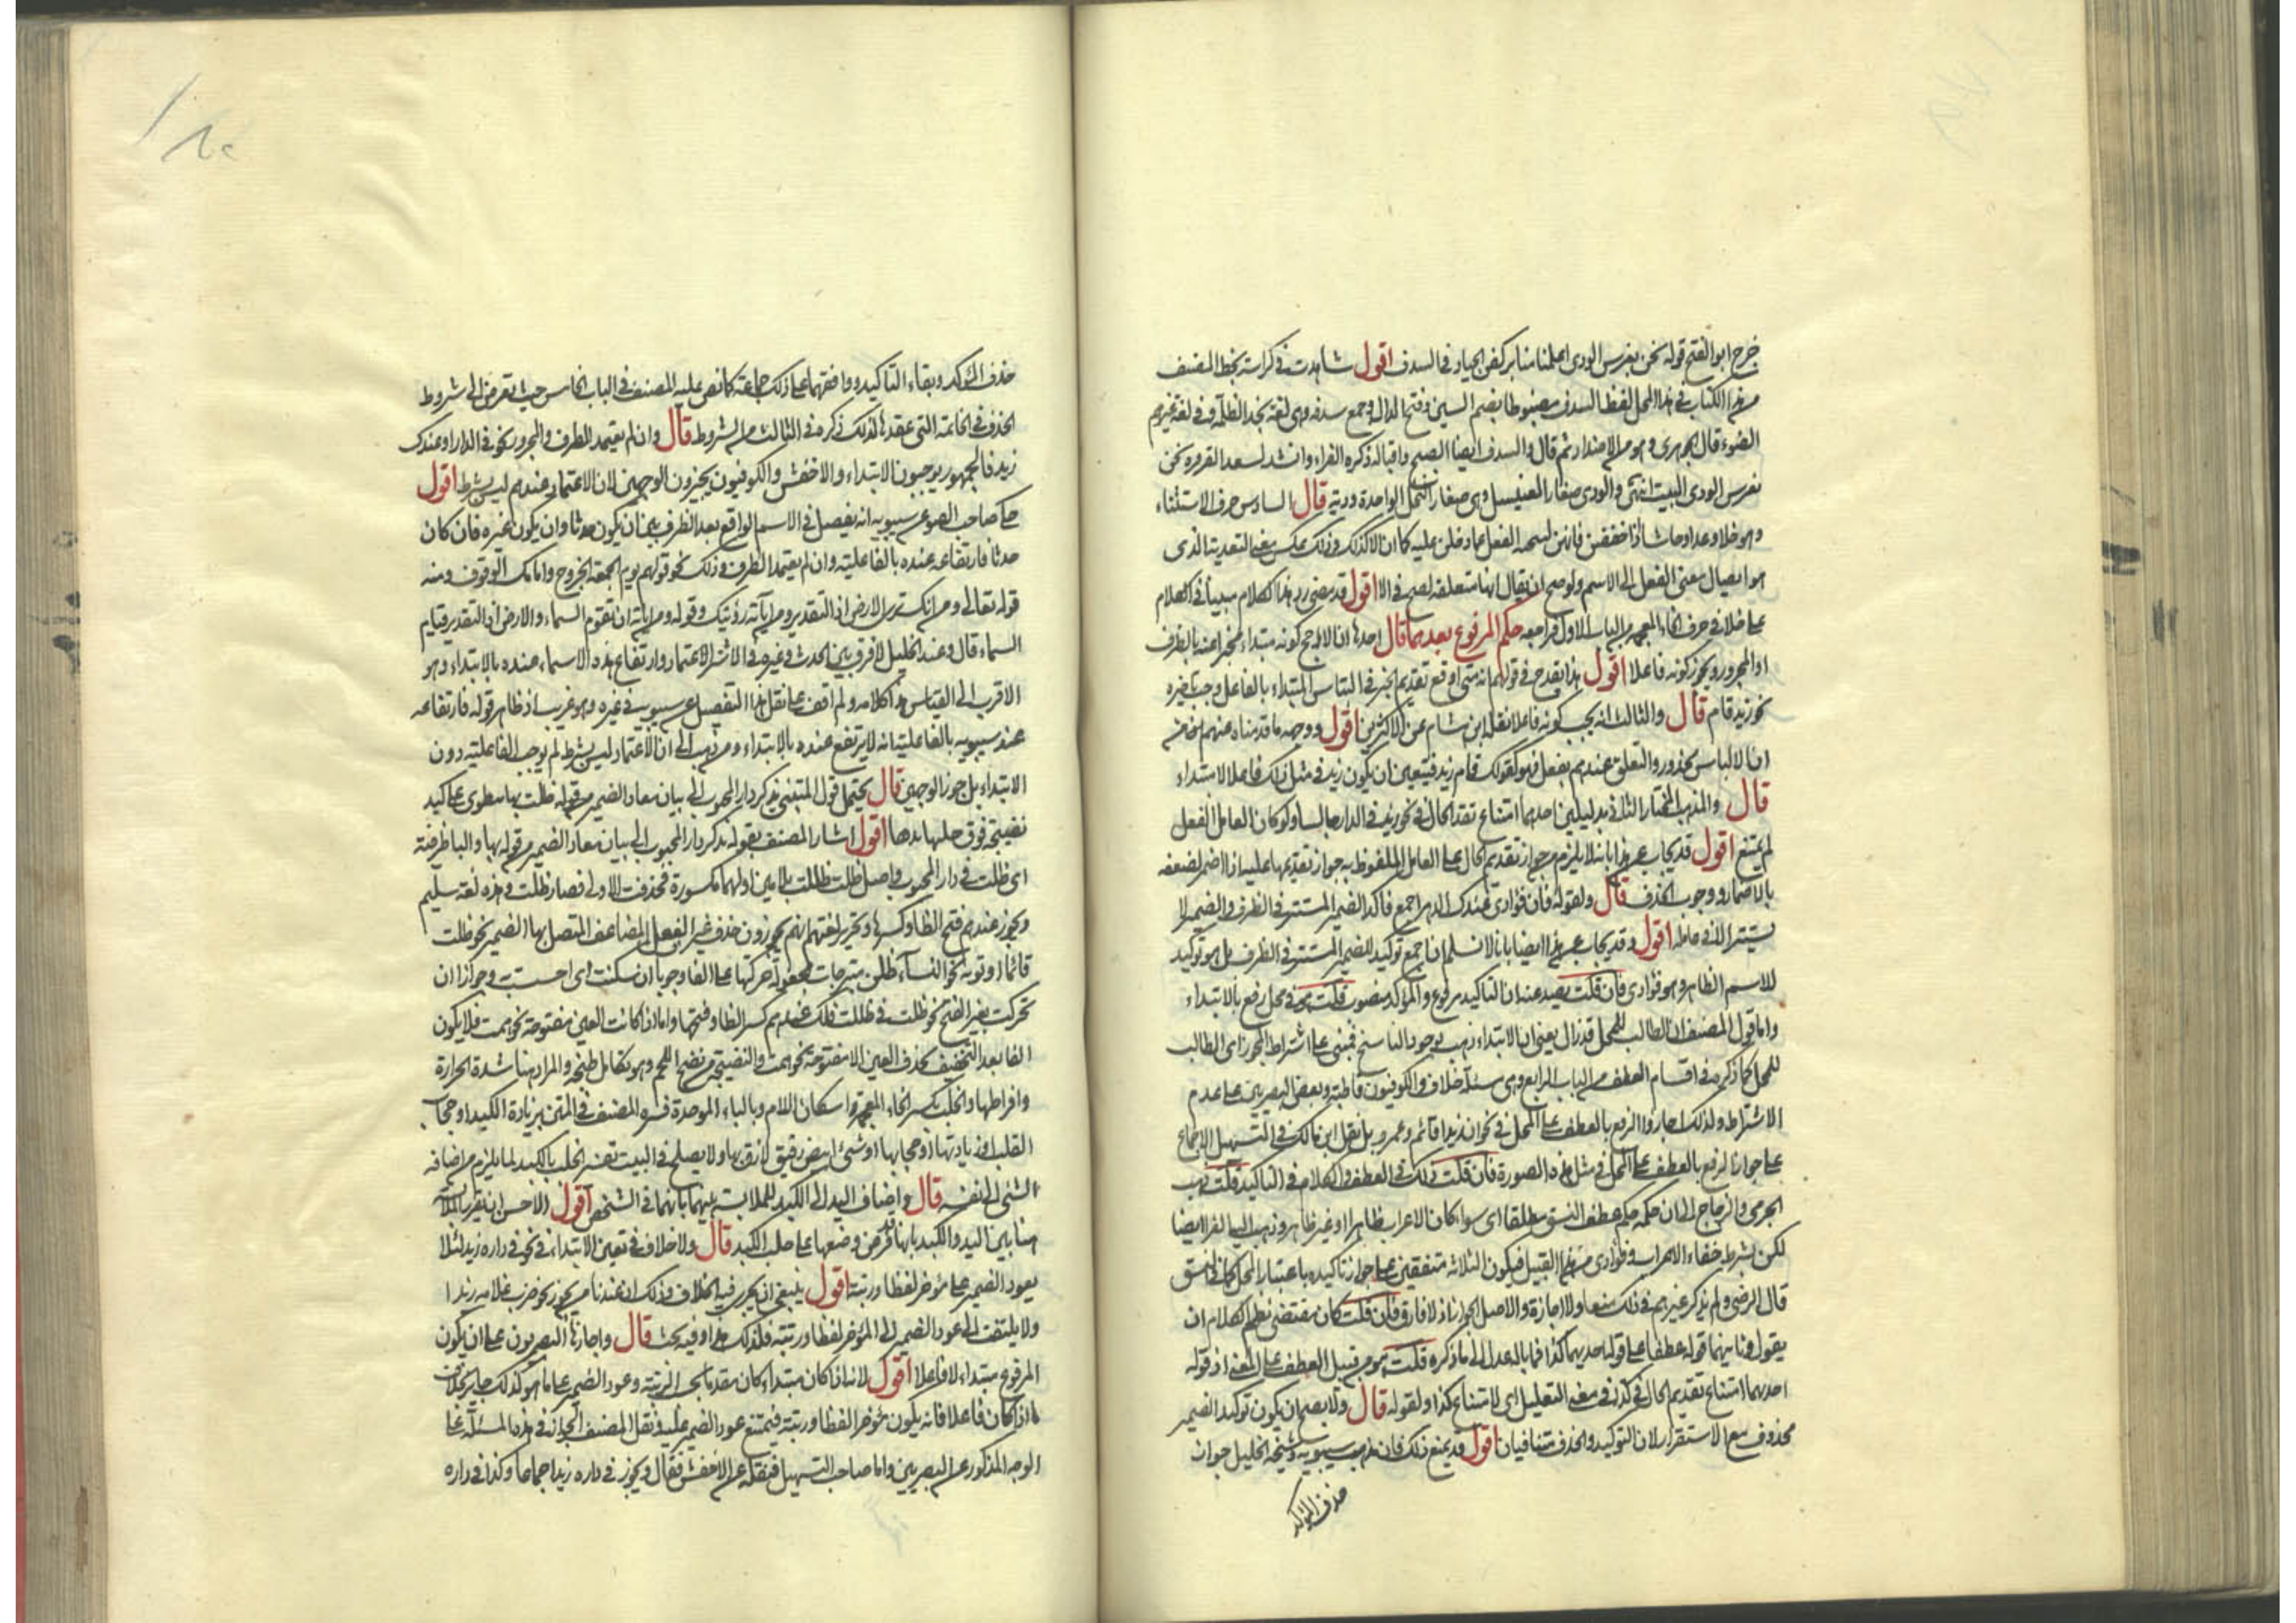 خرج ابو الفتح قوله نحن بغرس الودى اعلمنا منا بركض الجياد فى السدف اقول شاهدت فى كراسة بخط المصنف
من هذا الكتاب فى هذا المحل لفظ السدف مضبوطا بضم السين وفتح الدال وجمع سدفه وهى لغة نجد الظلمة وفى لغة غيرهم
الضوء قال الجوهرى وهو من الاضداد ثم قال والسدف ايضا الصبح واقباله ذكره الفراء وانشد لسعد القرقره نحن
بغرس الودى البيت انتهى والودى صغار الفسيل وهى صغار النخل الواحدة ودية قال السادس حرف الاستثناء
وهو خلا وعدا وحاشا اذا خفضن فانهن لتنحية الفعل عما دخلن عليه كما ان الا كذلك وذلك عكس معنى التعدية الذى
هو ايصال معنى الفعل الى الاسم ولو صح ان يقال انها متعلقة لصح فى الا اقول قد مضى رد هذا الكلام مبينا فى الكلام
على خلا فى حرف الخاء المعجمة من الباب الاول فراجعه حكم المرفوع بعدهما قال احدها ان الارجح كونه مبتداء مخبرا عنه بالظرف
او المجرور ويجوز كونه فاعلا اقول هذا يقدح فى قولهم انه متى اوقع تقديم الخبر فى التباس المبتداء بالفاعل وجب تاخيره
نحو زيد قام قال والثالث انه يجب كونه فاعلا نقله ابن هشام عن الاكثرين اقول ووجهه ما قدمناه عنهم من
ان الالباس محذور والتعلق عندهم بفعل فهو كقولك قام زيد فيتعين ان يكون زيد فى مثل ذلك فاعلا لا مبتداء
قال والمذهب المختار الثانى بدليلين احدهما امتناع تقديم الحال فى نحو زيد فى الدار جالسا ولو كان العامل الفعل
لم يمتنع اقول قد يجاب عن هذا بانه لا يلزم من جواز تقديم الحال على العامل الملفوظ به جواز تقديمها عليه اذا اضمر لضعفه
بالاضمار ووجوب الحذف قال ولقوله فان فؤادى عندك الدهر اجمع فاكد الضمير المستتر فى الظرف والضمير لا
يستتر الا فى عامله اقول وقد يجاب عن هذا ايضا بانا لا نسلم ان اجمع توكيد للضمير المستتر فى الظرف بل هو توكيد
للاسم الظاهر وهو فؤادى فان قلت يصد عنه ان التاكيد مرفوع والمؤكد منصوب قلت هو فى محل رفع بالابتداء
واما قول المصنف ان الطالب للمحل قد زال يعنى ان الابتداء ذهب بوجود الناسخ فمبنى على اشتراط المحرز اى الطالب
للمحل كما ذكره فى اقسام العطف من الباب الرابع وهى مسئلة خلاف والكوفيون قاطبة وبعض البصريين على عدم
الاشتراط ولذلك اجازوا الرفع بالعطف على المحل فى نحو ان زيدا قائم وعمرو بل نقل ابن مالك فى التسهيل الاجماع
على جواز الرفع بالعطف على المحل فى مثل هذه الصورة فان قلت ذلك فى العطف والكلام فى التاكيد قلت ذهب
الجرمى والزجاج الى ان حكمه حكم عطف النسق مطلقا اى سواء كان الاعراب ظاهرا او غير ظاهر وذهب اليه الفرا ايضا
لكن بشرط خفاء الاعراب وفؤادى من هذا القبيل فيكون الثلاثة متفقين على جواز تاكيده باعتبار المحل كما فى النسق
قال الرضى ولم يذكر غيرهم فى ذلك منعا ولا اجازة والاصل الجواز اذ لا فارق فان قلت كان مقتضى نظم الكلام ان
يقول وثانيهما قوله عطفا على قوله احديهما كذا فما باله عدل الى ما ذكره قلت هو من قبيل العطف على المعنى اذ قوله
احدهما امتناع تقديم الحال فى كذا فى معنى التعليل اى لامتناع كذا ولقوله قال ولا يصح ان يكون توكيد الضمير
محذوف مع الاستقرار لان التوكيد والحذف متنافيان اقول قد يمنع ذلك فان مذهب سيبويه وشيخه الخليل جواز
حذف المؤكد
حذف المؤكد وبقاء التاكيد ووافقهما على ذلك جماعة كما نص عليه المصنف فى الباب الخامس حيث تعرض الى شروط
الحذف فى الخاتمة التى عقدها لذلك ذكره فى الثالث من الشروط قال وان لم يعتمد الظرف والمجرور نحو فى الدار او عندك
زيد فالجمهور يوجبون الابتداء والاخفش والكوفيون يجيزون الوجهين لان الاعتماد عندهم ليس بشرط اقول
حكى صاحب الضوء عن سيبويه انه يفصل فى الاسم الواقع بعد الظرف بين ان يكون حدثا وان يكون غيره فان كان
حدثا فارتفاعه عنده بالفاعلية وان لم يعتمد الظرف وذلك نحو قولهم يوم الجمعة الخروج وامامك الوقوف ومنه
قوله تعالى ومن اياته انك ترى الارض اذ التقدير ومن آياته رؤيتك وقوله ومن اياته ان تقوم السماء والارض اذ التقدير قيام
السماء قال وعند الخليل لا فرق بين الحدث وغيره فى الاشتراط الاعتماد وارتفاع هذه الاسماء عنده بالابتداء وهو
الاقرب الى القياس هذا كلامه ولم اقف على نقل هذا التفصيل عن سيبويه فى غيره وهو غريب اذ ظاهر قوله فارتفاعه
عند سيبويه بالفاعلية انه لا يرتفع عنده بالابتداء ومن ذهب الى ان الاعتماد ليس بشرط لم يوجب الفاعلية دون
الابتداء بل جوز الوجهين قال يحتمل قول المتنبى يذكر دار المحبوب الى بيان معاد الضمير من قوله ظلت بها تنطوى على كبد
نضيجة فوق خلبها يدها اقول اشار المصنف بقوله يذكر دار المحبوب الى بيان معاد الضمير من قوله بها والبا ظرفية
اى ظلت فى دار المحبوب واصل ظلت ظللت بلامين اولهما مكسورة فحذفت الاولى فصار ظلت وهذه لغة سليم
ويجوز عندهم فتح الظا وكسرها وتحرير لغتهم انهم يجوزون حذف عين الفعل المضاعف المتصل بها الضمير نحو ظلت
قائما او نونه نحو النساء ظلن متبرجات بجعول حركتها على الفا وجوبا ان سكنت اى احست به وجوازا ان
تحركت بغير الفتح نحو ظلت فى ظللت فلك عندهم كسر الظا وفتحها واما اذا كانت العين مفتوحة نحو همت فلا يكون
الفا بعد التخفيف بحذف العين الا مفتوحة نحو همت والنضيجة من نضج اللحم وهو تكامل طبخه والمراد هنا شدة الحرارة
وافراطها والخلب بكسر الخاء المعجمة واسكان اللام وبالباء الموحدة فسره المصنف فى المتن بزيادة الكبد او حجاب
القلب او زيادتها او حجابها او شئ ابيض رقيق لازق بها ولا يصلح فى البيت تفسير الخلب بالكبد لما يلزم من اضافة
الشئ الى نفسه قال واضاف اليد الى الكبد للملابسة بينهما بانهما فى الشخص اقول الاحسن ان يقرر الملابسة
هنا بين اليد والكبد بانها فرض وضعها على خلب الكبد قال ولا خلاف فى تعين الابتداء فى نحو فى داره زيد لئلا
يعود الضمير على مؤخر لفظا ورتبة اقول ينبغى ان يجرى فيه الخلاف وذلك ان عندنا من يجوز نحو ضرب غلامه زيدا
ولا يلتفت الى عود الضمير الى المؤخر لفظا ورتبة فلذلك هذا وفيه بحث قال واجازها البصريون على ان يكون
المرفوع مبتداء لا فاعلا اقول لانه اذا كان مبتداء كان مقدما بحسب الرتبة وعود الضمير على ما هو كذلك جايز بخلاف
ما اذا كان فاعلا فانه يكون مؤخرا لفظا ورتبة فيمتنع عود الضمير عليه ونقل المصنف الجواز فى هذه المسئلة على
الوجه المذكور عن البصريين واما صاحب التسهيل فنقله عن الاخفش فقال ويجوز فى داره زيد اجماعا وكذا فى داره